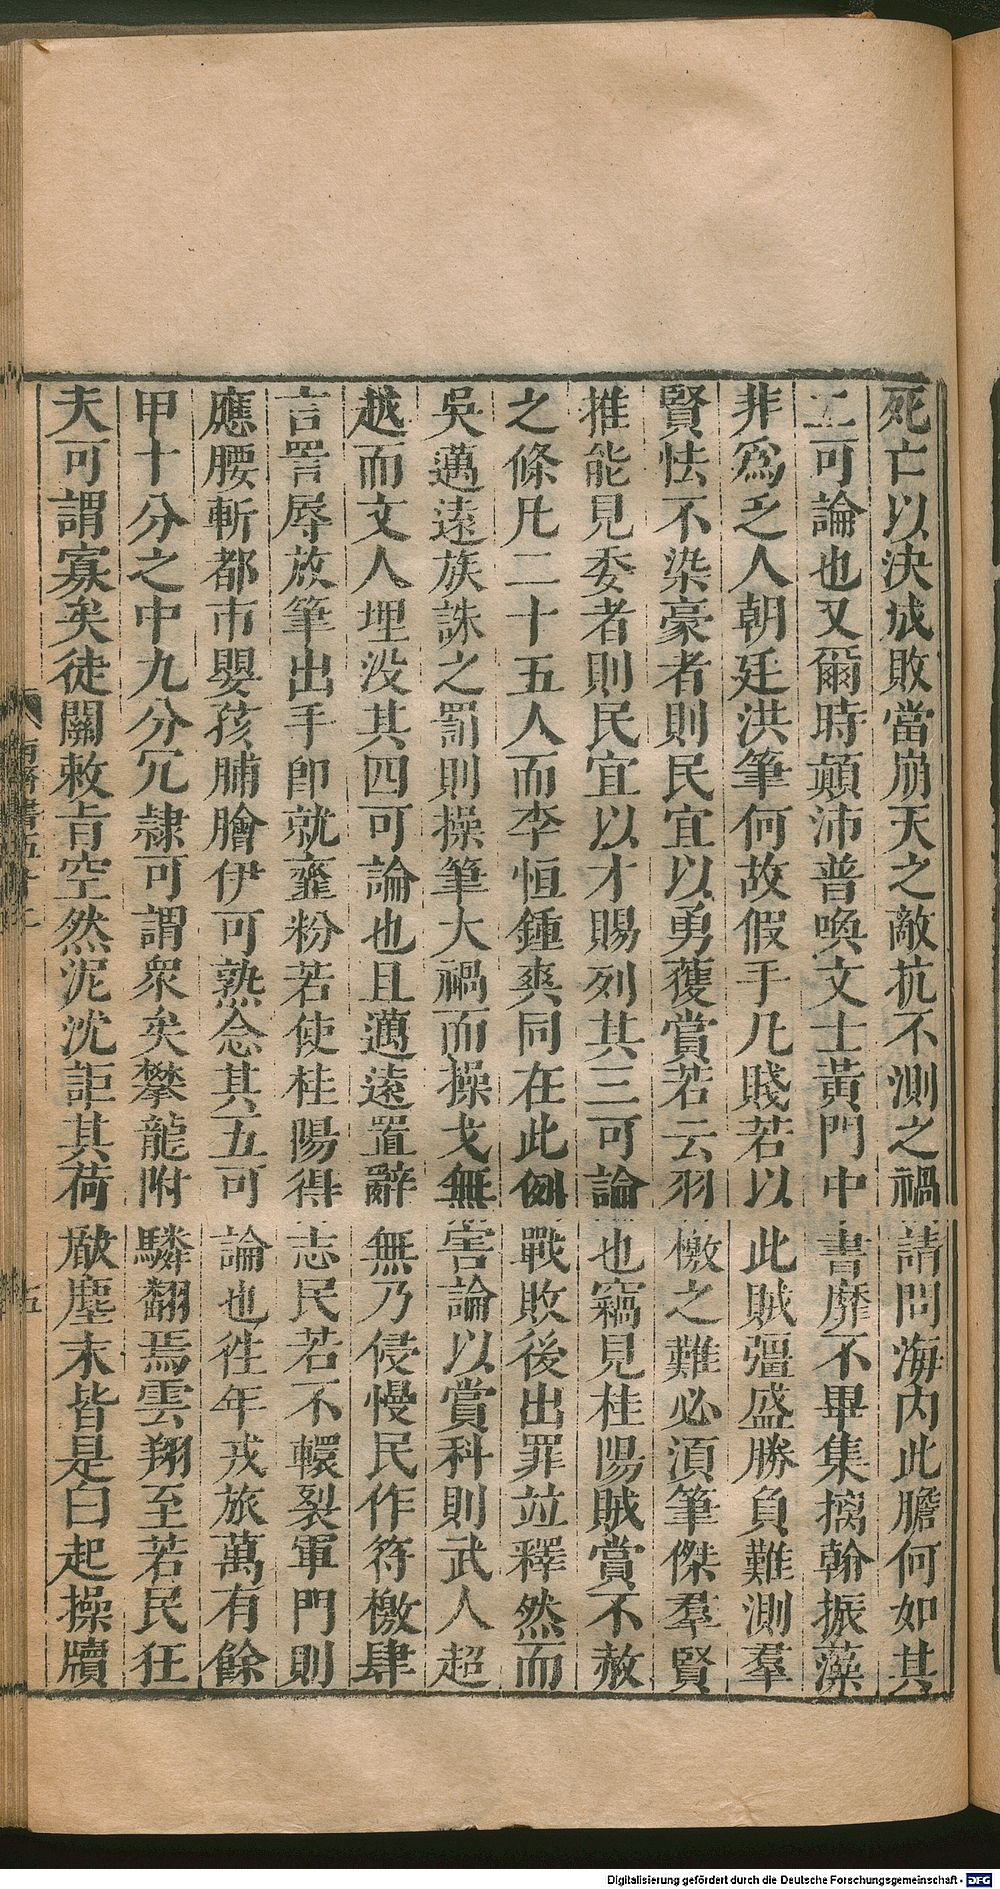 死亡以決成敗當崩天之敵抗不測之禍請問海內此膽何如其
二可論也又爾時顛沛普喚文士黃門中書靡不畢集摛翰振藻
非爲乏人朝廷洪筆何故假手凡賤若以此賊彊盛勝負難測羣
賢怯不染豪者則民宜以勇獲賞若云羽檄之難必須筆傑羣賢
推能見委者則民宜以才賜列其三可論也竊見桂陽賊賞不赦
之條凡二十五人而李恒鍾爽同在此例戰敗後出罪並釋然而
吳邁遠族誅之罰則操筆大禍而操戈無害論以賞科則武人超
越而文人埋没其四可論也且邁遠置辭無乃侵慢民作符檄肆
言詈辱放筆出手卽就虀粉若使桂陽得志民若不轘裂軍門則
應腰斬都市嬰孩脯膾伊可熟念其五可論也徃年戎旅萬有餘
甲十分之中九分冗隷可謂衆矣攀龍附驎翻焉雲翔至若民狂
夫可謂寡矣徒關敕旨空然泥沈詎其荷厰塵末皆是白起操牘
南齊書五十二
五
Digitalisierung gefördert durch die Deutsche Forschungsgemeinschaft - DFG